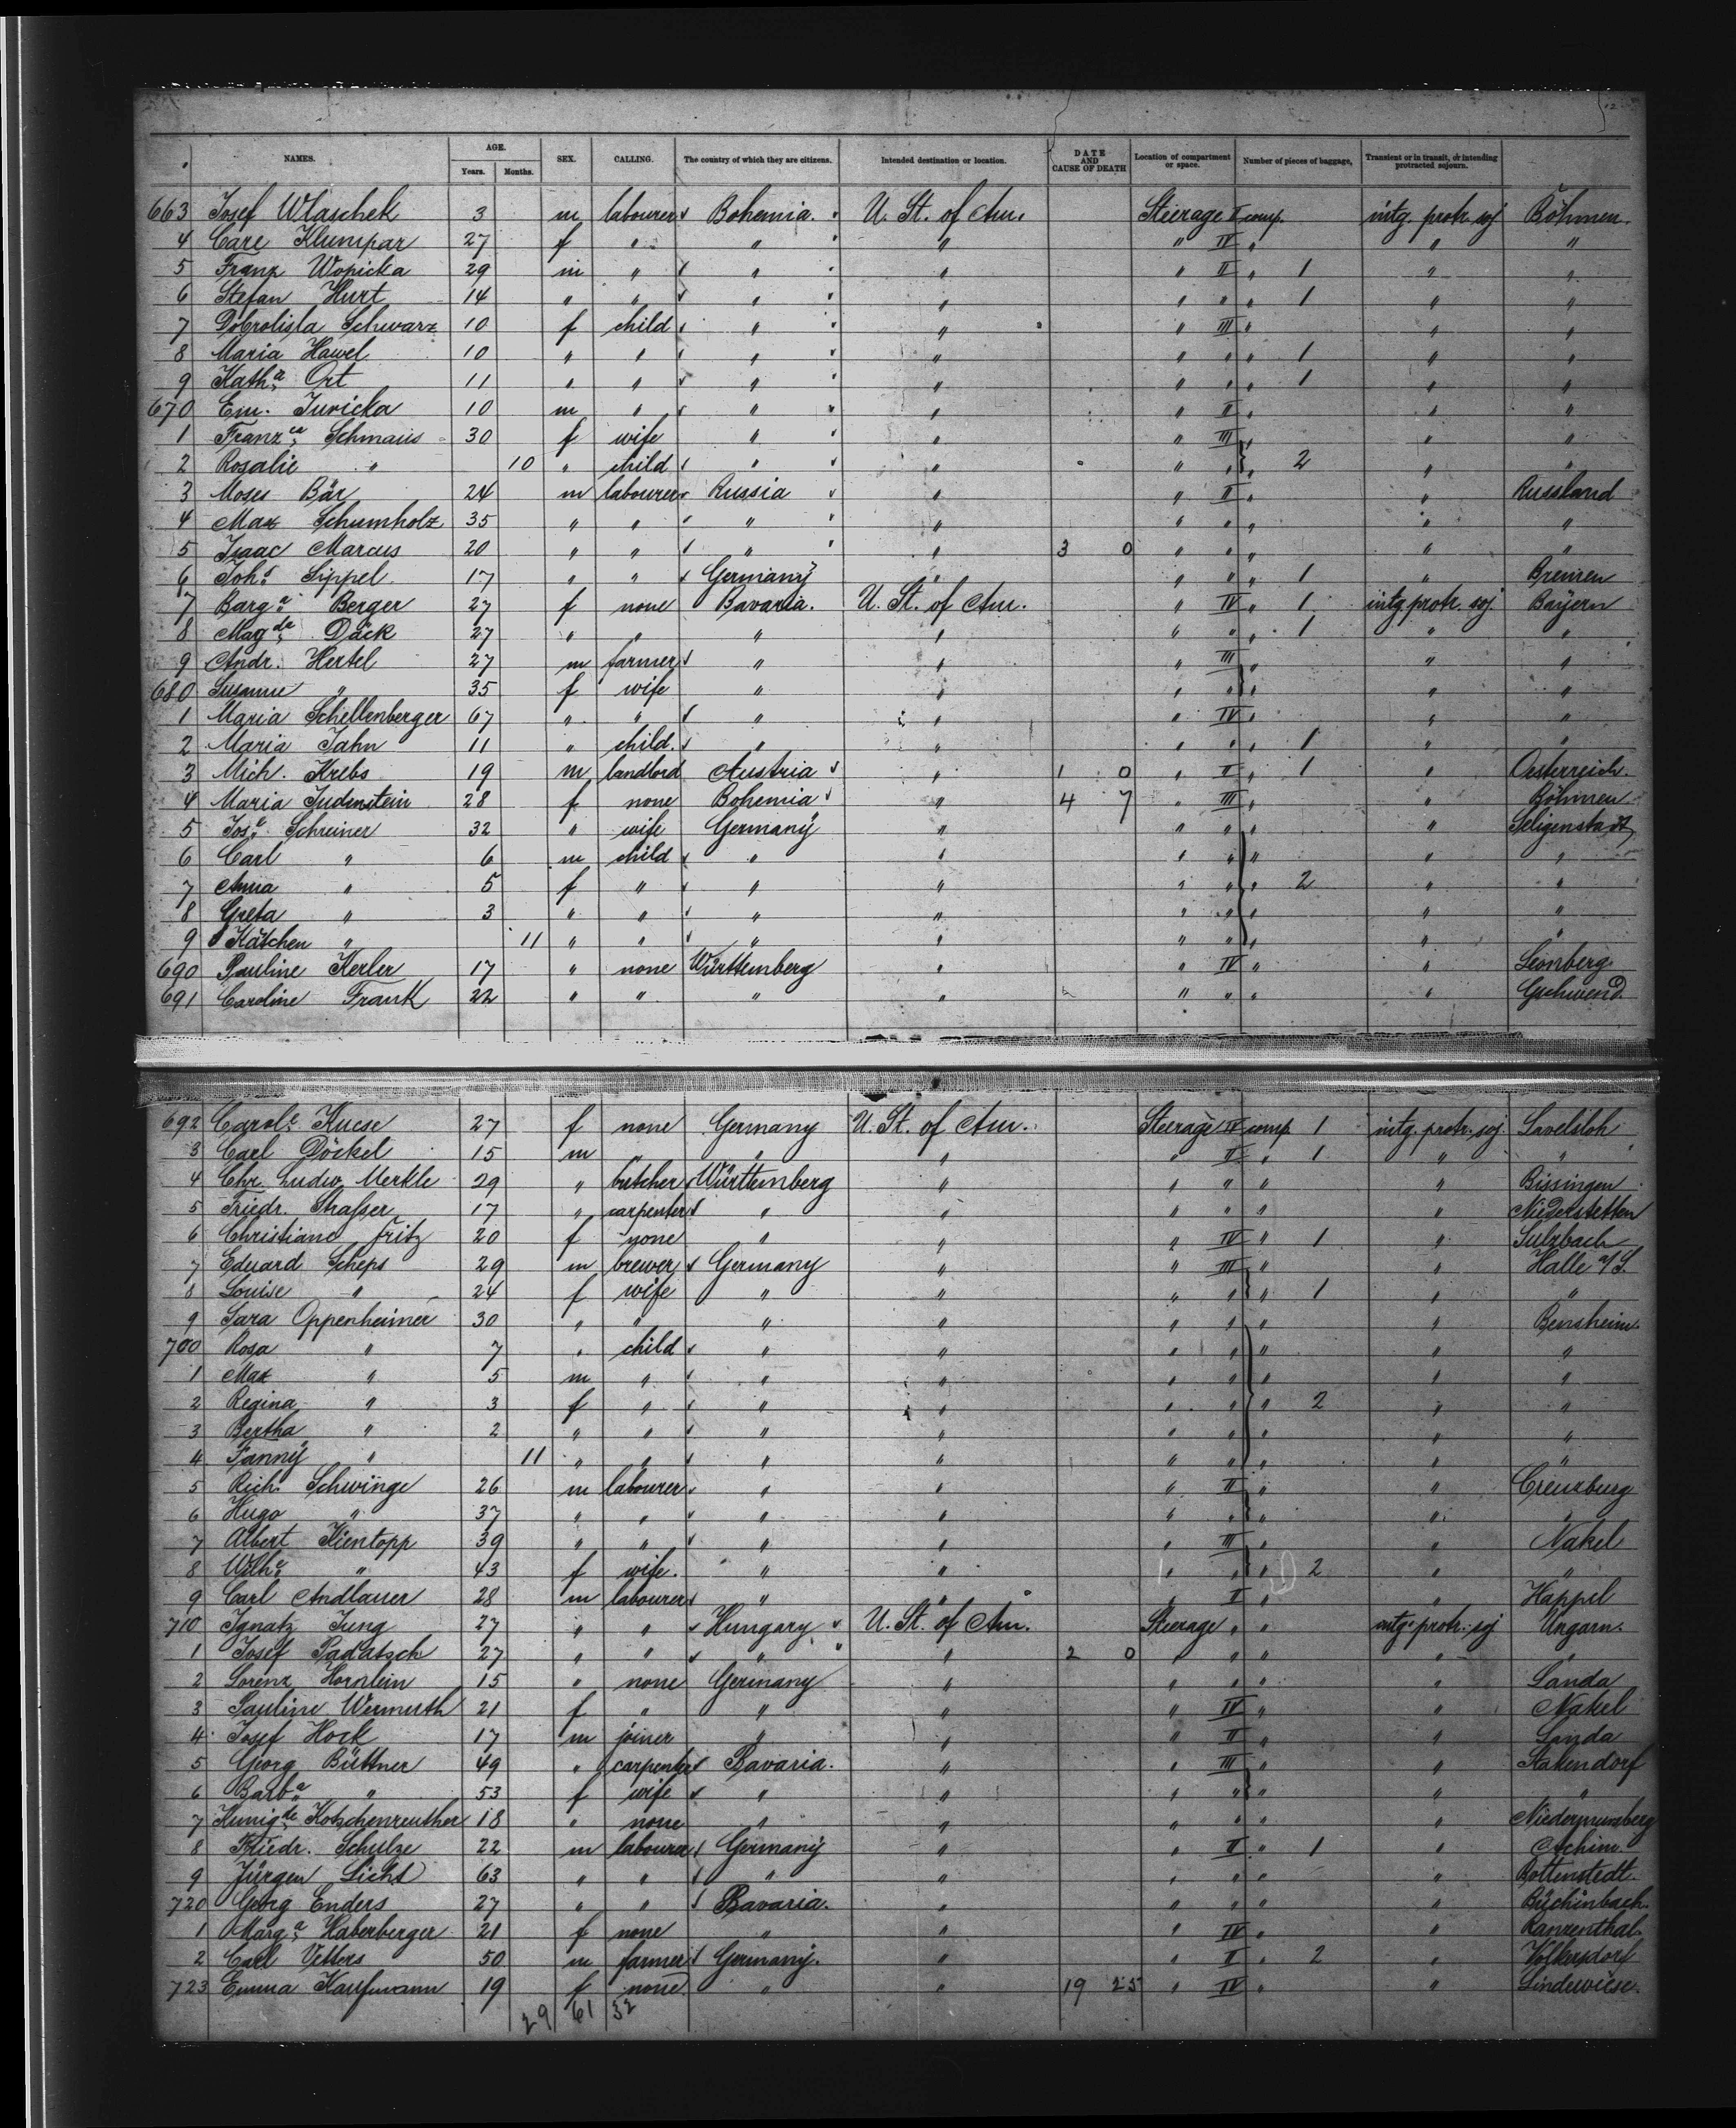 NAMES. AGE. Years. Months. SEX. CALLING. The country of which they are citizens. Intended destination or location. DATE AND CAUSE OF DEATH Location of compartment or space. Number of pieces of baggage, Transient or in transit, or intending protracted sojourn.
663 Josef Wlaschek 3 m labourer Bohemia. U. St. of Am. Steerage II comp. intg. protr. soj Böhmen.
4 Care Klumpar 27 f " " " " IV " " "
5 Franz Wopicka 29 m " " " " II " 1 " "
6 Stefan Hurt 14 " " " " " " " 1 " "
7 Schwarz 10 f child " " " III " " "
8 Maria Hawel 10 " " " " " " " 1 " "
9 Kath.a Ort 11 " " " " " " " 1 " "
670 Em. Juricka 10 m " " " " II " " "
1 Franz.ca Schmaus 30 f wife " " " III " " "
2 Rosalie " 10 " child " " " " " 2 " "
3 Moses Bär 24 m labourer Russia " " II " " Russland
4 Max Schumholz 35 " " " " " " " " "
5 Isaac Marcus 20 " " " " 3 0 " " " " "
6 Joh.s Sippel 17 " " Germany " " " " 1 " Bremen
7 Barg.a Berger 27 f none Bavaria. U. St. of Am. " IV " 1 intg. protr. soj. Bayern
8 Mag.da Däck 27 " " " " " " " 1 " "
9 Andr. Hertel 27 m farmer " " " III " " "
680 Susanne " 35 f wife " " " " " " "
1 Maria Schellenberger 67 " " " " " IV " " "
2 Maria Jahn 11 " child. " " " " " 1 " "
3 Mich. Krebs 19 m landlord Austria " 1 0 " II " 1 " Oesterreich.
4 Maria Judenstein 28 f none Bohemia " 4 7 " III " " Böhmen
5 Jos.a Schreiner 32 " wife Germany " " " " " Seligenstadt
6 Carl " 6 m child " " " " " " "
7 Anna " 5 f " " " " " " 2 " "
8 Greta " 3 " " " " " " " " "
9 Kätchen " 11 " " " " " " " " "
690 Pauline Kerler 17 " none Württemberg " " IV " " Leonberg
691 Caroline Frank 22 " " " " " " " " Gschwend.
692 Carol.e Kuese 27 f none Germany U. St. of Am. Steerage IV comp. 1 intg. protr. soj.
3 Carl Döckel 15 m " " " " II " 1 " "
4 Chr. Ludw. Merkle 29 " butcher Württemberg " " " " " Bissingen
5 Friedr. Strasser 17 " carpenter " " " " " " Niederstetten
6 Christiane Fritz 20 f none " " " IV " 1 " Sulzbach
7 Eduard Scheps 29 m brewer Germany " " III " " Halle a/S.
8 Louise " 24 f wife " " " " " 1 " "
9 Sara Oppenheimer 30 " " " " " " " " Bensheim.
700 Rosa " 7 " child " " " " " " "
1 Max " 5 m " " " " " " " "
2 Regina " 3 f " " " " " " 2 " "
3 Bertha " 2 " " " " " " " " "
4 Fanny " 11 " " " " " " " " "
5 Rich. Schwinge 26 m labourer " " " II " " Creuzburg
6 Hugo " 37 " " " " " " " " "
7 Albert Kientopp 39 " " " " " III " " Nakel
8 Wilh.e " 43 f wife. " " " " " 2 " "
9 Carl Andlauer 28 m labourer " " " II " " Happel
710 Ignatz Jung 27 " " Hungary U. St. of Am. Steerage " " intg. protr. soj Ungarn.
1 Josef Padatsch 27 " " " " 2 0 " " " " "
2 Lorenz Hornlein 15 " none Germany " " " " " Landa
3 Pauline Wermuth 21 f " " " " IV " " Nakel
4 Josef Hock 17 m joiner " " " II " " Landa
5 Georg Büttner 49 " carpenter Bavaria. " " III " "
6 Barb.a " 53 f wife " " " " " " "
7 Kunig.de Kotschenreuther 18 " none " " " " " "
8 Friedr. Schulze 22 m labourer Germany " " II " 1 " Achim.
9 Jürgen Licht 63 " " " " " " " " Bottenstedt.
720 Georg Enders 27 " " Bavaria. " " " " " Büchinbach.
1 Marg.a Haberberger 21 f none " " " IV " " Ranzenthal.
2 Carl Vetters 50 m farmer Germany. " " II " 2 " Volkersdorf
723 Emma Kaufmann 19 f none " " 19 25 " IV " " Lindewiese.
29 61 32